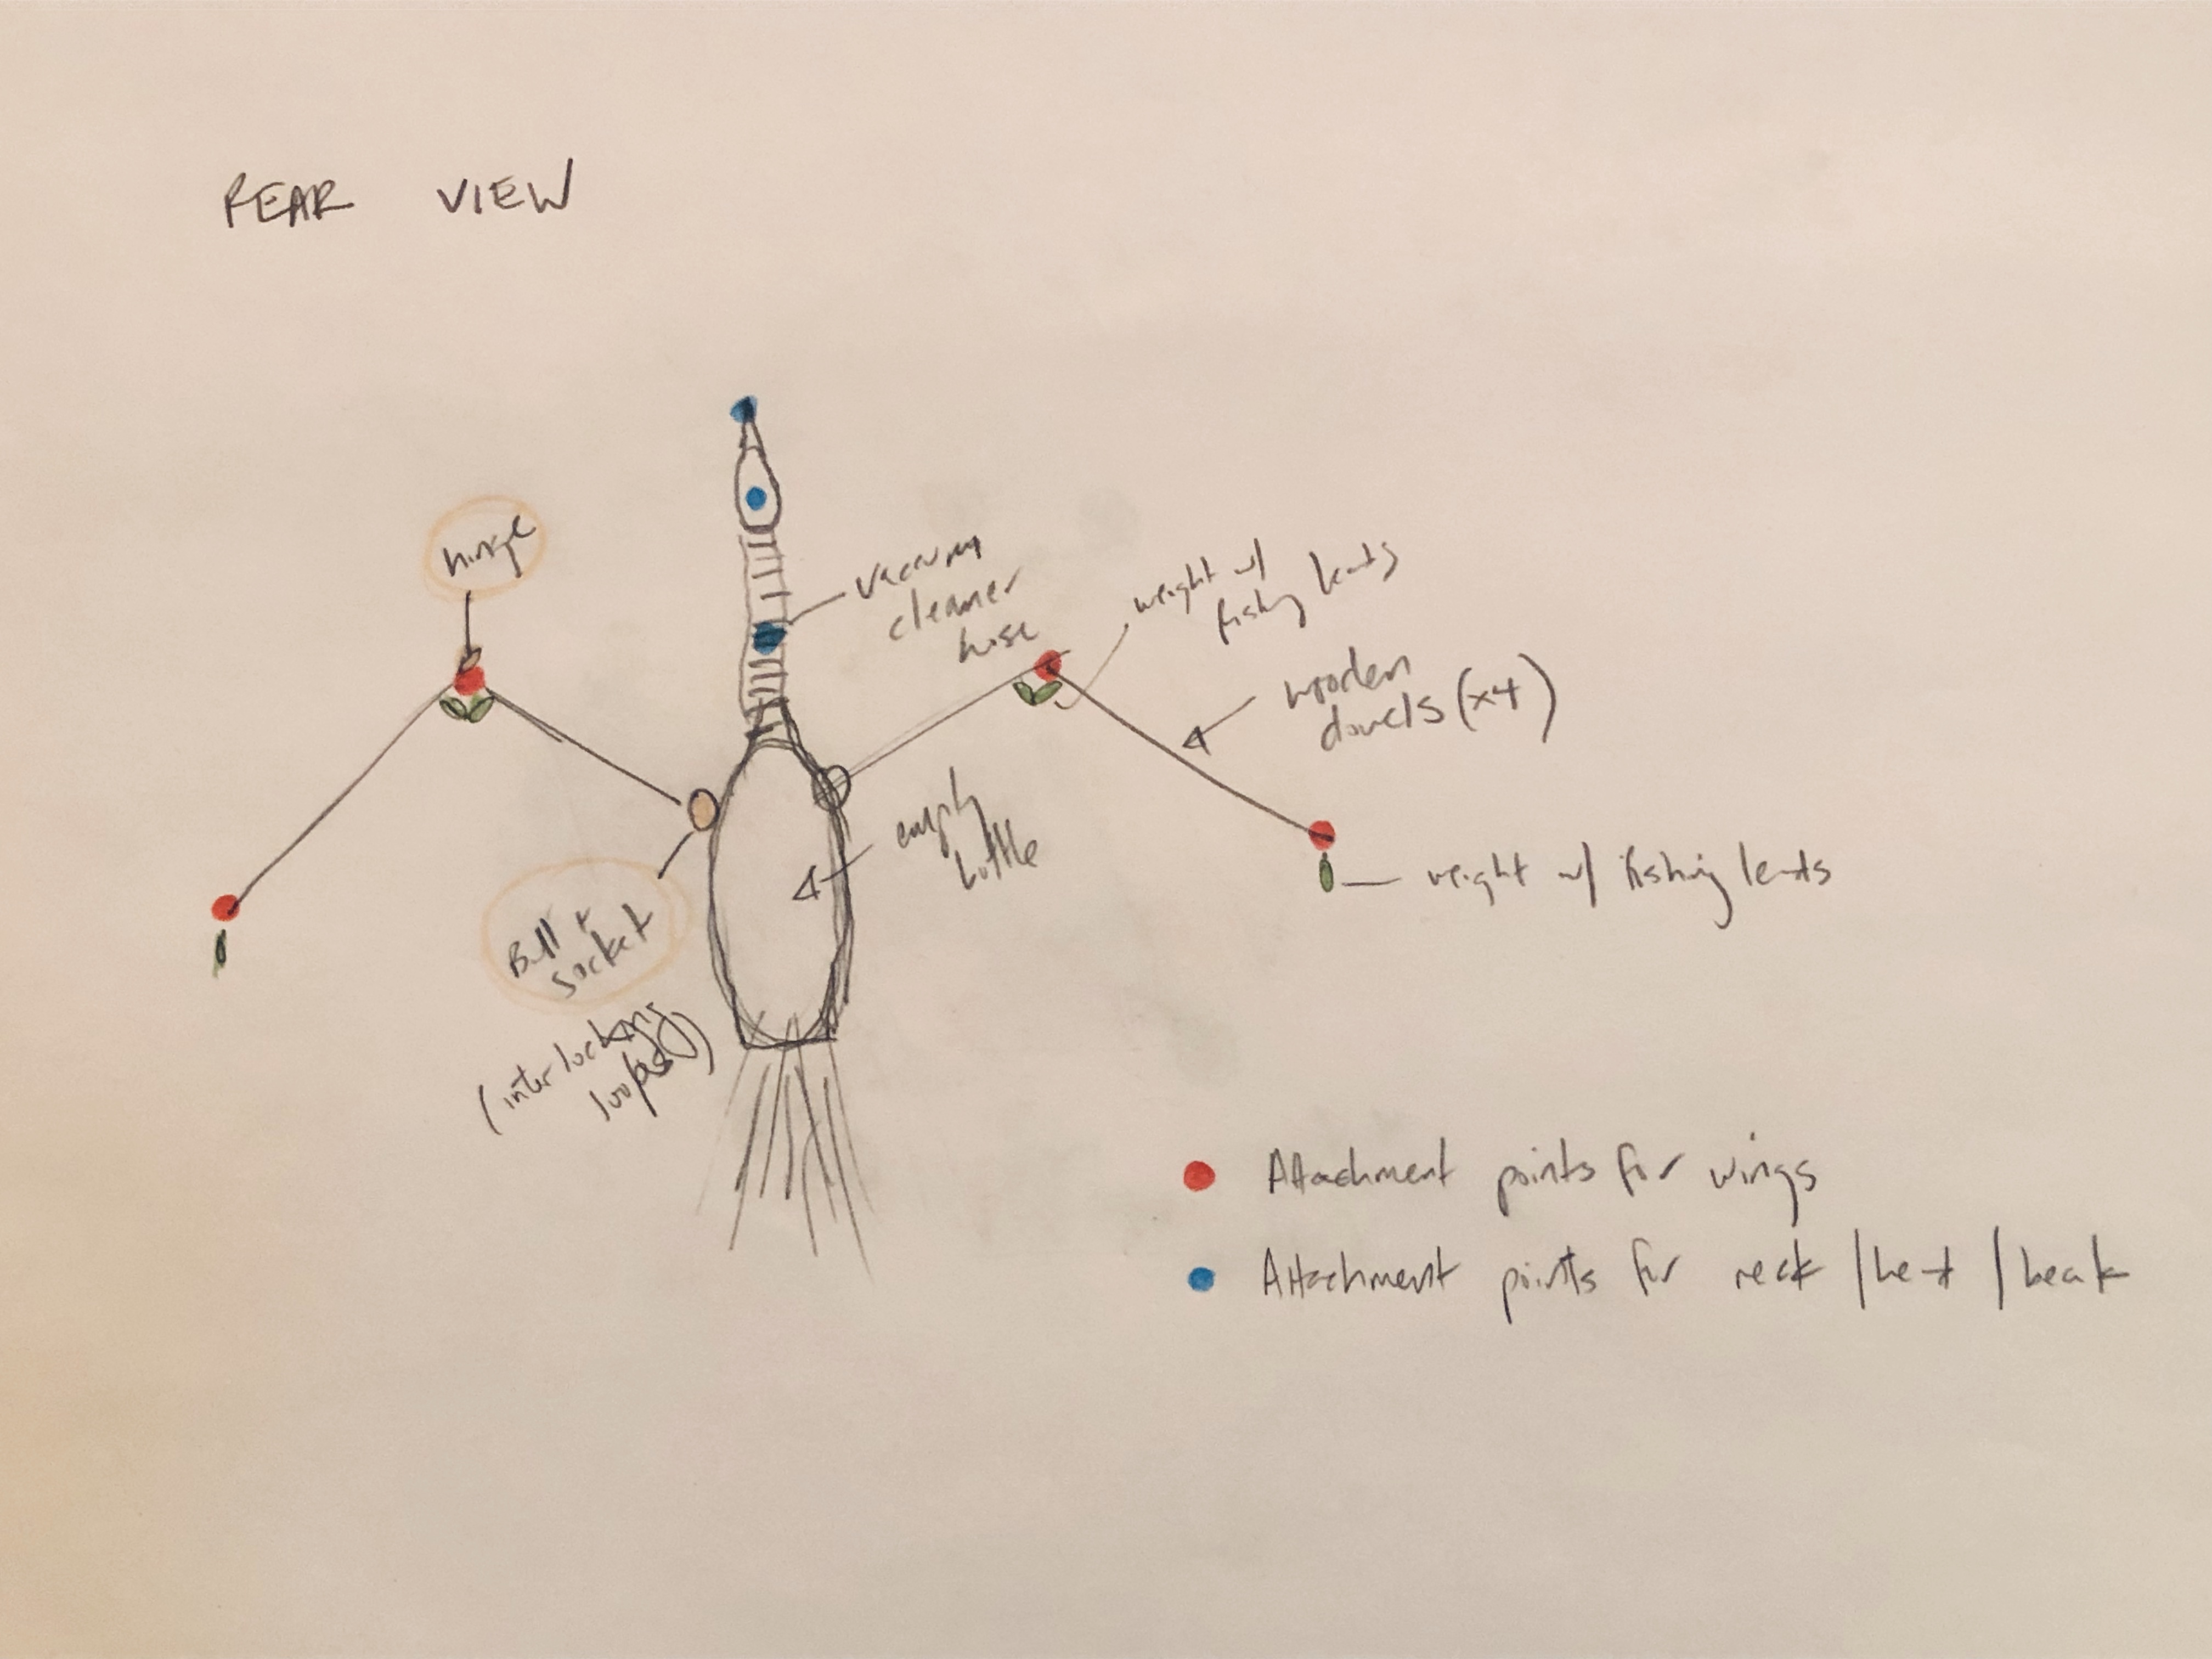 REAR VIEW
hinge
vacuum
cleaner
hose
weight w/
fishing leads
wooden
dowels (x4)
empty
bottle
weight w/ fishing leads
Ball +
socket
(interlocking
loops)
Attachment points for wings
Attachment points for neck / head / beak